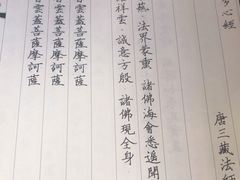 多心經
唐三藏法師
爇 法界蒙熏 諸佛海會悉遙聞
祥雲 誠意方殷 諸佛現全身
雲蓋菩薩摩訶薩
雲蓋菩薩摩訶薩
雲蓋菩薩摩訶薩